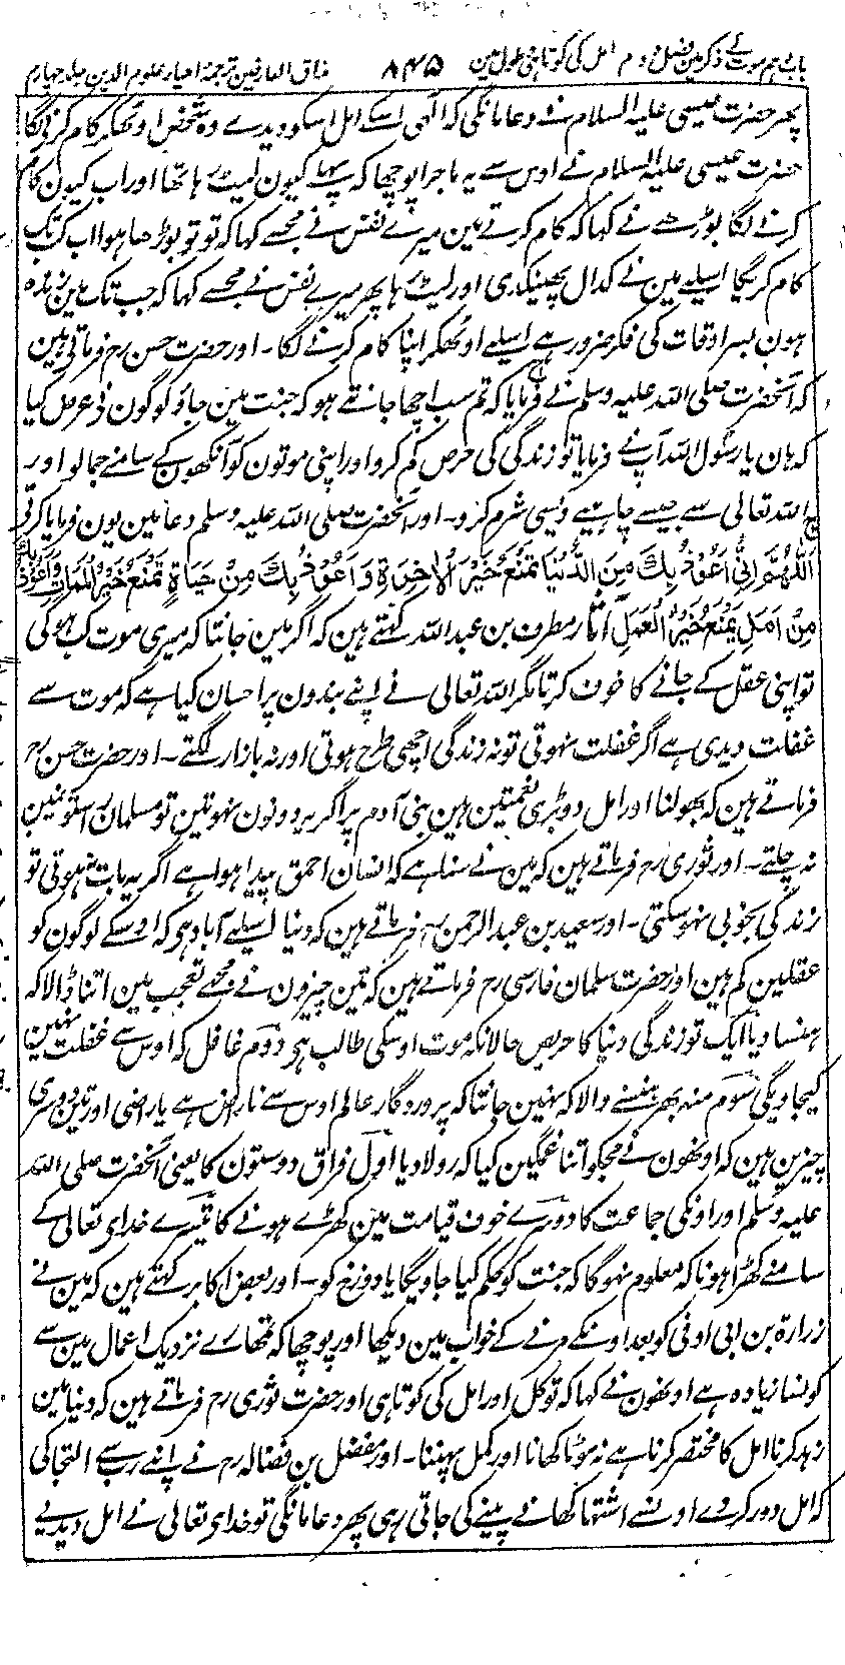 باب دہم موت کے ذکر مین فصل دوم امل کی کوتاہی و طول مین ۸۴۵ مذاق العارفین ترجمۂ احیاء علوم الدین جلد چہارم
پھر حضرت عیسی علیہ السلام نے دعا مانگی کہ الٰہی اسکے امل اسکو دیدے وہ شخص اوٹھکر کام کرنے لگا
حضرت عیسی علیہ السلام نے اوس سے یہ ماجرا پوچھا کہ پہلے کیون لیٹ رہا تھا اور اب کیون کام
کرنے لگا بوڑھے نے کہا کہ کام کرتے مین میرے نفس نے مجھسے کہا کہ تو تو بوڑھا ہوا اب کب تک
کام کریگا اسلیے مین نے کدال پھینکدی اور لیٹ رہا پھر میرے نفس نے مجھسے کہا کہ جب تک مین زندہ
ہون بسر اوقات کی فکر ضرور ہے اسلیے اوٹھکر اپنا کام کرنے لگا ۔ اور حضرت حسن رح فرماتے ہین
کہ آنحضرت صلی اللہ علیہ وسلم نے فرمایا کہ تم سب اچھا جانتے ہو کہ جنت مین جاؤ لوگون نے عرض کیا
کہ ہان یا رسول اللہ آپ نے فرمایا تو زندگی کی حرص کم کرو اور اپنی موتون کو آنکھون کے سامنے جمالو اور
اللہ تعالی سے جیسے چاہیے ویسی شرم کرو ۔ اور آنحضرت صلی اللہ علیہ وسلم دعا مین یون فرمایا کرتے
اَللّٰهُمَّ اِنِّي اَعُوْذُ بِكَ مِنَ الدُّنْيَا تَمْنَعُ خَيْرَ الْاٰخِرَةِ وَ اَعُوْذُ بِكَ مِنْ حَيَاةٍ تَمْنَعُ خَيْرَ الْمَمَاتِ وَاَعُوْذُ بِكَ
مِنْ اَمَلٍ يَمْنَعُ خَيْرَ الْعَمَلِ آثار مطرف بن عبد اللہ کہتے ہین کہ اگر مین جانتا کہ میری موت کب ہوگی
تو اپنی عقل کے جانے کا خوف کرتا مگر اللہ تعالی نے اپنے بندون پر احسان کیا ہے کہ موت سے
غفلت دیدی ہے اگر غفلت نہوتی تو نہ زندگی اچھی طرح ہوتی اور نہ بازار لگتے ۔ اور حضرت حسن رح
فرماتے ہین کہ بھولنا اور امل دو بڑی نعمتین ہین بنی آدم پر اگر یہ دونون نہوتین تو مسلمان رستونمین
نہ چلتے ۔ اور ثوری رح فرماتے ہین کہ مین نے سنا ہے کہ انسان احمق پیدا ہوا ہے اگر یہ بات نہوتی تو
زندگی بخوبی نہو سکتی ۔ اور سعید بن عبد الرحمن رح فرماتے ہین کہ دنیا اسلیے آباد ہی کہ اوسکے لوگون کو
عقلین کم ہین اور حضرت سلمان فارسی رح فرماتے ہین کہ تین چیزون نے مجھے تعجب مین اتنا ڈالا کہ
ہنسا دیا ایک تو زندگی دنیا کا حریص حالانکہ موت اوسکی طالب ہی دوم غافل کہ اوس سے غفلت نہین
کیجاویگی سوم منہ بھر ہنسنے والا کہ نہین جانتا کہ پروردگار عالم اوس سے ناراض ہے یا راضی اور تین دوسری
چیزین ہین کہ اونھون نے مجکو اتنا غمگین کیا کہ رولا دیا اول فراق دوستون کا یعنی آنحضرت صلی اللہ
علیہ وسلم اور اونکی جماعت کا دوسرے خوف قیامت مین کھڑے ہونے کا تیسرے خدای تعالی کے
سامنے کھڑا ہونا کہ معلوم نہوگا کہ جنت کو حکم کیا جاویگا یا دوزخ کو ۔ اور بعض اکابر کہتے ہین کہ مین نے
زرارۃ بن ابی اوفی کو بعد اونکے مرنے کے خواب مین دیکھا اور پوچھا کہ تمھارے نزدیک اعمال مین سے
کونسا زیادہ ہے اونھون نے کہا کہ توکل اور امل کی کوتاہی اور حضرت ثوری رح فرماتے ہین کہ دنیا مین
زہد کرنا امل کا مختصر کرنا ہے نہ موٹا کھانا اور کمل پہننا ۔ اور مفضل بن فضالہ رح نے اپنے رب سے التجا کی
کہ امل دور کردے اونسے اشتہا کھانے پینے کی جاتی رہی پھر دعا مانگی تو خدای تعالی نے امل دیدیے